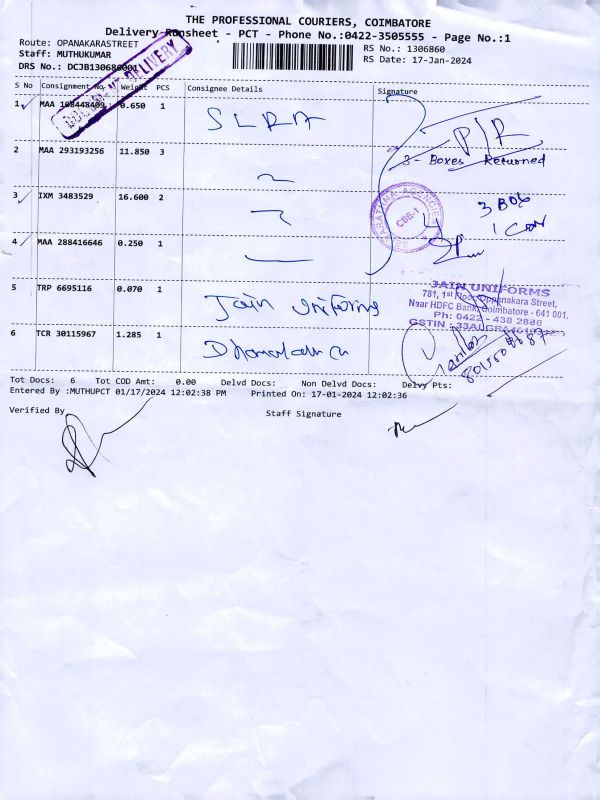 THE PROFESSIONAL COURIERS, COIMBATORE
Delivery Runsheet - PCT - Phone No.:0422-3505555 - Page No.:1
Route: OPANAKARASTREET RS No.: 1306860
Staff: MUTHUKUMAR RS Date: 17-Jan-2024
DRS No.: DCJB130686
S No Consignment No. Weight PCS Consignee Details Signature
1 MAA 0.650 1 SLRA P/R
2 MAA 293193256 11.850 3 3 - Boxes Returned
3 IXM 3483529 16.600 2 3 Box
1 Cov
CBE-1
4 MAA 288416646 0.250 1
5 TRP 6695116 0.070 1 Jain Uniforms
JAIN UNIFORMS
781, 1st Floor, Oppanakara Street,
Near HDFC Bank, Coimbatore - 641 001.
Ph: 0422 - 438 2886
GSTIN :
6 TCR 30115967 1.285 1
Tot Docs: 6 Tot COD Amt: 0.00 Delvd Docs: Non Delvd Docs: Delvy Pts:
Entered By :MUTHUPCT 01/17/2024 12:02:38 PM Printed On: 17-01-2024 12:02:36
Verified By Staff Signature